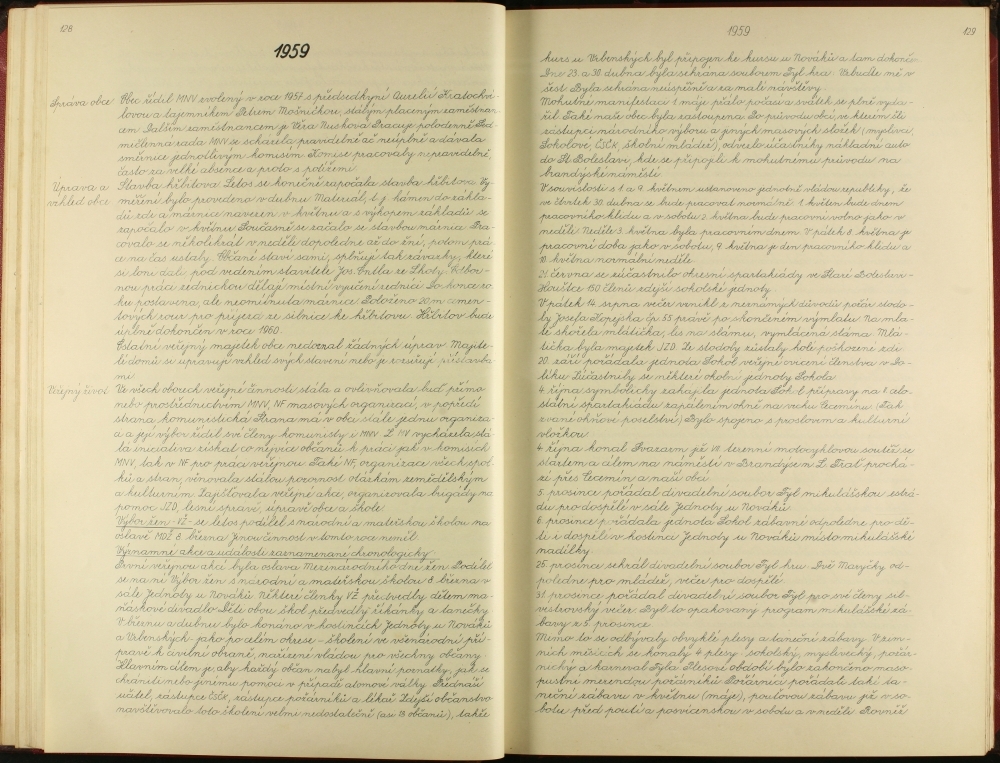 128
1959
Správa obce Obec řídil MNV zvolený v roce 1957 s předsedkyní Aurelií Kratochví-
lovou a tajemníkem Petrem Mošničkou, stálým placeným zaměstnan-
cem. Dalším zaměstnancem je Věra Ruschová. Pracuje polodenně. Sed-
mičlenná rada MNV se scházela pravidelně ač neúplně a dávala
směrnice jednotlivým komisím. Komise pracovaly nepravidelně,
často za velké absence a proto s potížemi.
Úprava a Stavba hřbitova. Letos se konečně započala stavba hřbitova. Vy-
vzhled obce měření bylo provedeno v dubnu. Materiál, t. j. kámen do zákla-
dů zdí a márnice navezen v květnu a s výkopem základů se
započalo v květnu. Současně se začalo se stavbou márnice. Pra-
covalo se několikrát v neděli dopoledne až do žní, potom prá-
ce na čas ustaly. Občané staví sami, splňují tak závazky, které
si loni dali pod vedením stavitele Jos. Entla ze Lhoty. Odbor-
nou práci zednickou dělají místní vyučení zedníci. Do konce ro-
ku postavena, ale neomítnuta márnice. Položeno 20 m cemen-
tových rour pro příjezd ze silnice ke hřbitovu. Hřbitov bude
úplně dokončen v roce 1960.
Ostatní veřejný majetek obce nedoznal žádných úprav. Majite-
lé domů si upravují vzhled svých stavení nebo je zvětšují přístavba-
mi.
Veřejný život Ve všech oborech veřejné činnosti stála a ovlivňovala buď přímo
nebo prostřednictvím MNV, NF masových organizací, v popředí
strana komunistická. Strana má v obci stále jednu organiza-
ci a její výbor řídil své členy komunisty v MNV. Z MV vycházela stá-
lá iniciativa získat co nejvíce občanů k práci jak v komisích
MNV, tak v NF pro práci veřejnou. Také NF, organizace všech spol-
ků a stran, věnovala stálou pozornost otázkám zemědělským
a kulturním. Zajišťovala veřejné akce, organizovala brigády na
pomoc JZD, lesní správě, úpravě obce a škole.
Výbor žen - VŽ - se letos podílel s národní a mateřskou školou na
oslavě MDŽ 8. března. Jinou činnost v tomto roce neměl.
Významné akce a události zaznamenané chronologicky:
První veřejnou akcí byla oslava Mezinárodního dne žen. Podílel
se na ní Výbor žen s národní a mateřskou školou 8. března v
sále Jednoty u Nováků. Některé členky VŽ předvedly dětem ma-
ňáskové divadlo. Děti obou škol předvedly říkánky a tanečky.
V březnu a dubnu bylo konáno v hostincích Jednoty u Nováků
a Vrbenských - jako po celém okrese - školení ve všenárodní pří-
pravě k civilní obraně, nařízení vládou pro všechny občany.
Hlavním cílem je, aby každý občan nabyl hlavní poznatky, jak se
chrániti nebo jinému pomoci v případě atomové války. Přednáší
učitel, zástupce ČSČK, zástupce požárníků a lékař. Zdejší občanstvo
navštěvovalo toto školení velmi nedostatečně (asi 18 občanů), takže
1959
129
kurs u Vrbenských byl připojen ke kursu u Nováků a tam dokonče-
Dne 23. a 30. dubna byla sehrána souborem Tyl hra: Vzbuďte mě v
šest. Byla sehrána neúspěšně a za malé návštěvy.
Mohutné manifestaci 1. máje přálo počasí a svátek se plně vyda-
řil. Také naše obec byla zastoupena. Po průvodu obcí, ve kterém šli
zástupci národního výboru a jiných masových složek (myslivci,
Sokolové, ČSČK, školní mládež), odvezlo účastníky nákladní auto
do St. Boleslavi, kde se připojili k mohutnému průvodu na
brandýské náměstí.
V souvislosti s 1. a 9. květnem ustanoveno jednotně vládou republiky, že
ve čtvrtek 30. dubna se bude pracovat normálně. 1. květen bude dnem
pracovního klidu a v sobotu 2. května bude pracovní volno jako v
neděli. Neděle 3. května byla pracovním dnem. V pátek 8. května je
pracovní doba jako v sobotu, 9. května je den pracovního klidu a
10. května normální neděle.
21. června se zúčastnilo okresní spartakiády ve Staré Boleslavi -
Houštce 150 členů zdejší sokolské jednoty.
V pátek 14. srpna večer vznikl z neznámých důvodů požár stodo-
ly Josefa Kopejska čp. 55 právě po skončeném výmlatu. Na mla-
tě shořela mlátička, lis na slámu, vymlácená sláma. Mlá-
tička byla majetek JZD. Ze stodoly zůstaly holé poškozené zdi.
20. září pořádala jednota Sokol veřejné cvičení členstva v So-
líku. Zúčastnily se některé okolní jednoty Sokola.
4. října symbolicky zahájila jednota Sokol přípravy na II. celo-
státní spartakiádu zapálením ohně na vrchu Cecemínu. (Tak
zvané ohňové poselství.) Bylo spojeno s proslovem a kulturní
vložkou.
4. října konal Svazarm již VII. terenní motocyklovou soutěž se
startem a cílem na náměstí v Brandýse n. L. Trať prochá-
zí přes Cecemín a naši obcí.
5. prosince pořádal divadelní soubor Tyl mikulášskou estrá-
du pro dospělé v sále Jednoty u Nováků.
6. prosince pořádala jednota Sokol zábavné odpoledne pro dě-
ti i dospělé v hostinci Jednoty u Nováků místo mikulášské
nadílky.
25. prosince sehrál divadelní soubor Tyl hru: Dvě Maryčky od-
poledne pro mládež, večer pro dospělé.
31. prosince pořádal divadelní soubor Tyl pro své členy sil-
vestrovský večer. Byl to opakovaný program mikulášské zá-
bavy z 5. prosince.
Mimo to se odbývaly obvyklé plesy a taneční zábavy. V zim-
ních měsících se konaly 4 plesy: sokolský, myslivecký, požár-
nický a karneval Tyla. Plesové období bylo zakončeno maso-
pustní merendou požárníků. Požárníci pořádali také ta-
neční zábavu v květnu (máje), pouťovou zábavu již v so-
botu před poutí a posvícenskou v sobotu a v neděli. Rovněž